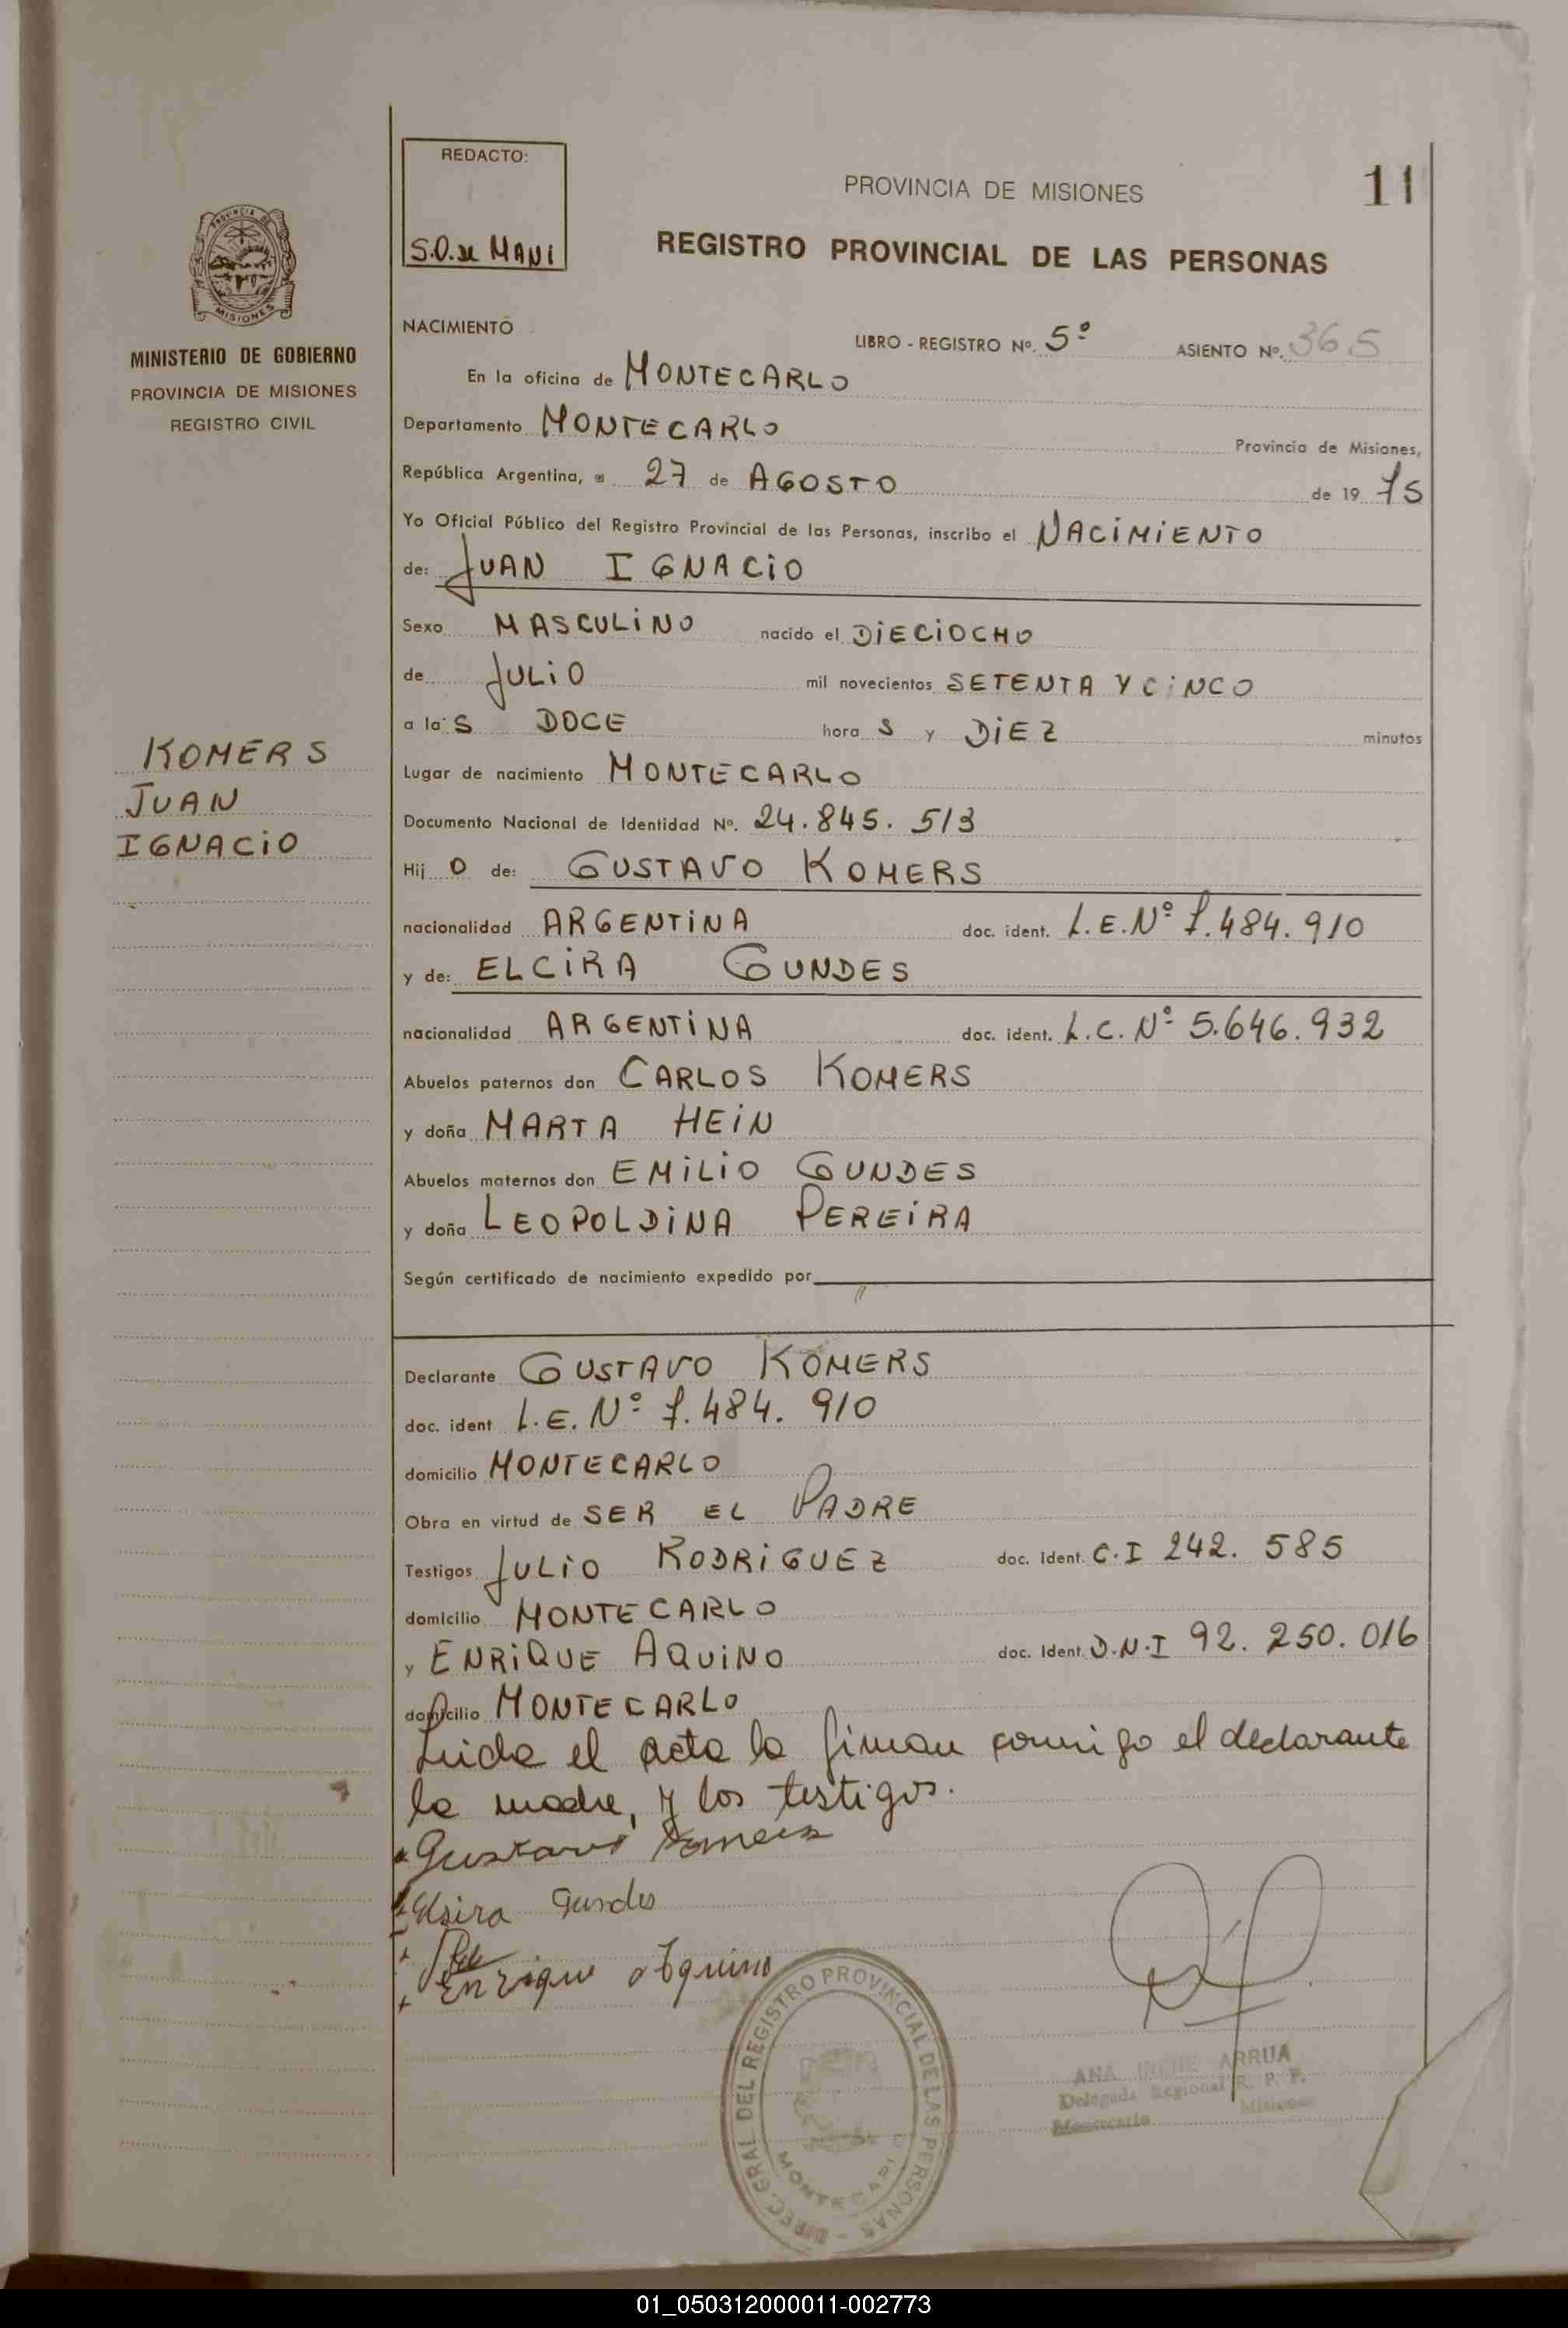 REDACTO:
S.O. de MANI
PROVINCIA DE MISIONES
11
REGISTRO PROVINCIAL DE LAS PERSONAS
PROVINCIA DE
MISIONES
MINISTERIO DE GOBIERNO
PROVINCIA DE MISIONES
REGISTRO CIVIL
KOMERS
JUAN
IGNACIO
NACIMIENTO
LIBRO - REGISTRO Nº. 5º ASIENTO Nº. 365
En la oficina de MONTECARLO
Departamento MONTECARLO Provincia de Misiones,
República Argentina, a 27 de AGOSTO de 19 75
Yo Oficial Público del Registro Provincial de las Personas, inscribo el NACIMIENTO
de: JUAN IGNACIO
Sexo MASCULINO nacido el DIECIOCHO
de JULIO mil novecientos SETENTA Y CINCO
a la S DOCE hora S y DIEZ minutos
Lugar de nacimiento MONTECARLO
Documento Nacional de Identidad Nº. 24.845.513
Hij O de: GUSTAVO KOMERS
nacionalidad ARGENTINA doc. ident. L.E.Nº 7.484.910
y de: ELCIRA GUNDES
nacionalidad ARGENTINA doc. ident. L.C. Nº 5.646.932
Abuelos paternos don CARLOS KOMERS
y doña MARTA HEIN
Abuelos maternos don EMILIO GUNDES
y doña LEOPOLDINA PEREIRA
Según certificado de nacimiento expedido por
Declarante GUSTAVO KOMERS
doc. ident L.E. Nº 7.484.910
domicilio MONTECARLO
Obra en virtud de SER EL PADRE
Testigos JULIO RODRIGUEZ doc. Ident. C.I 242.585
domicilio MONTECARLO
y ENRIQUE AQUINO doc. Ident. D.N.I 92.250.016
domicilio MONTECARLO
Leida el acta la firman conmigo el declarante
la madre, y los testigos.
Gustavo Komers
Elsira Gundes
Enrique Aquino
DIREC. GRAL. DEL REGISTRO PROVINCIAL DE LAS PERSONAS -
MONTECARLO
ANA IRENE ARRUA
Delegada Regional R. P. P.
Montecarlo Misiones
01_050312000011-002773